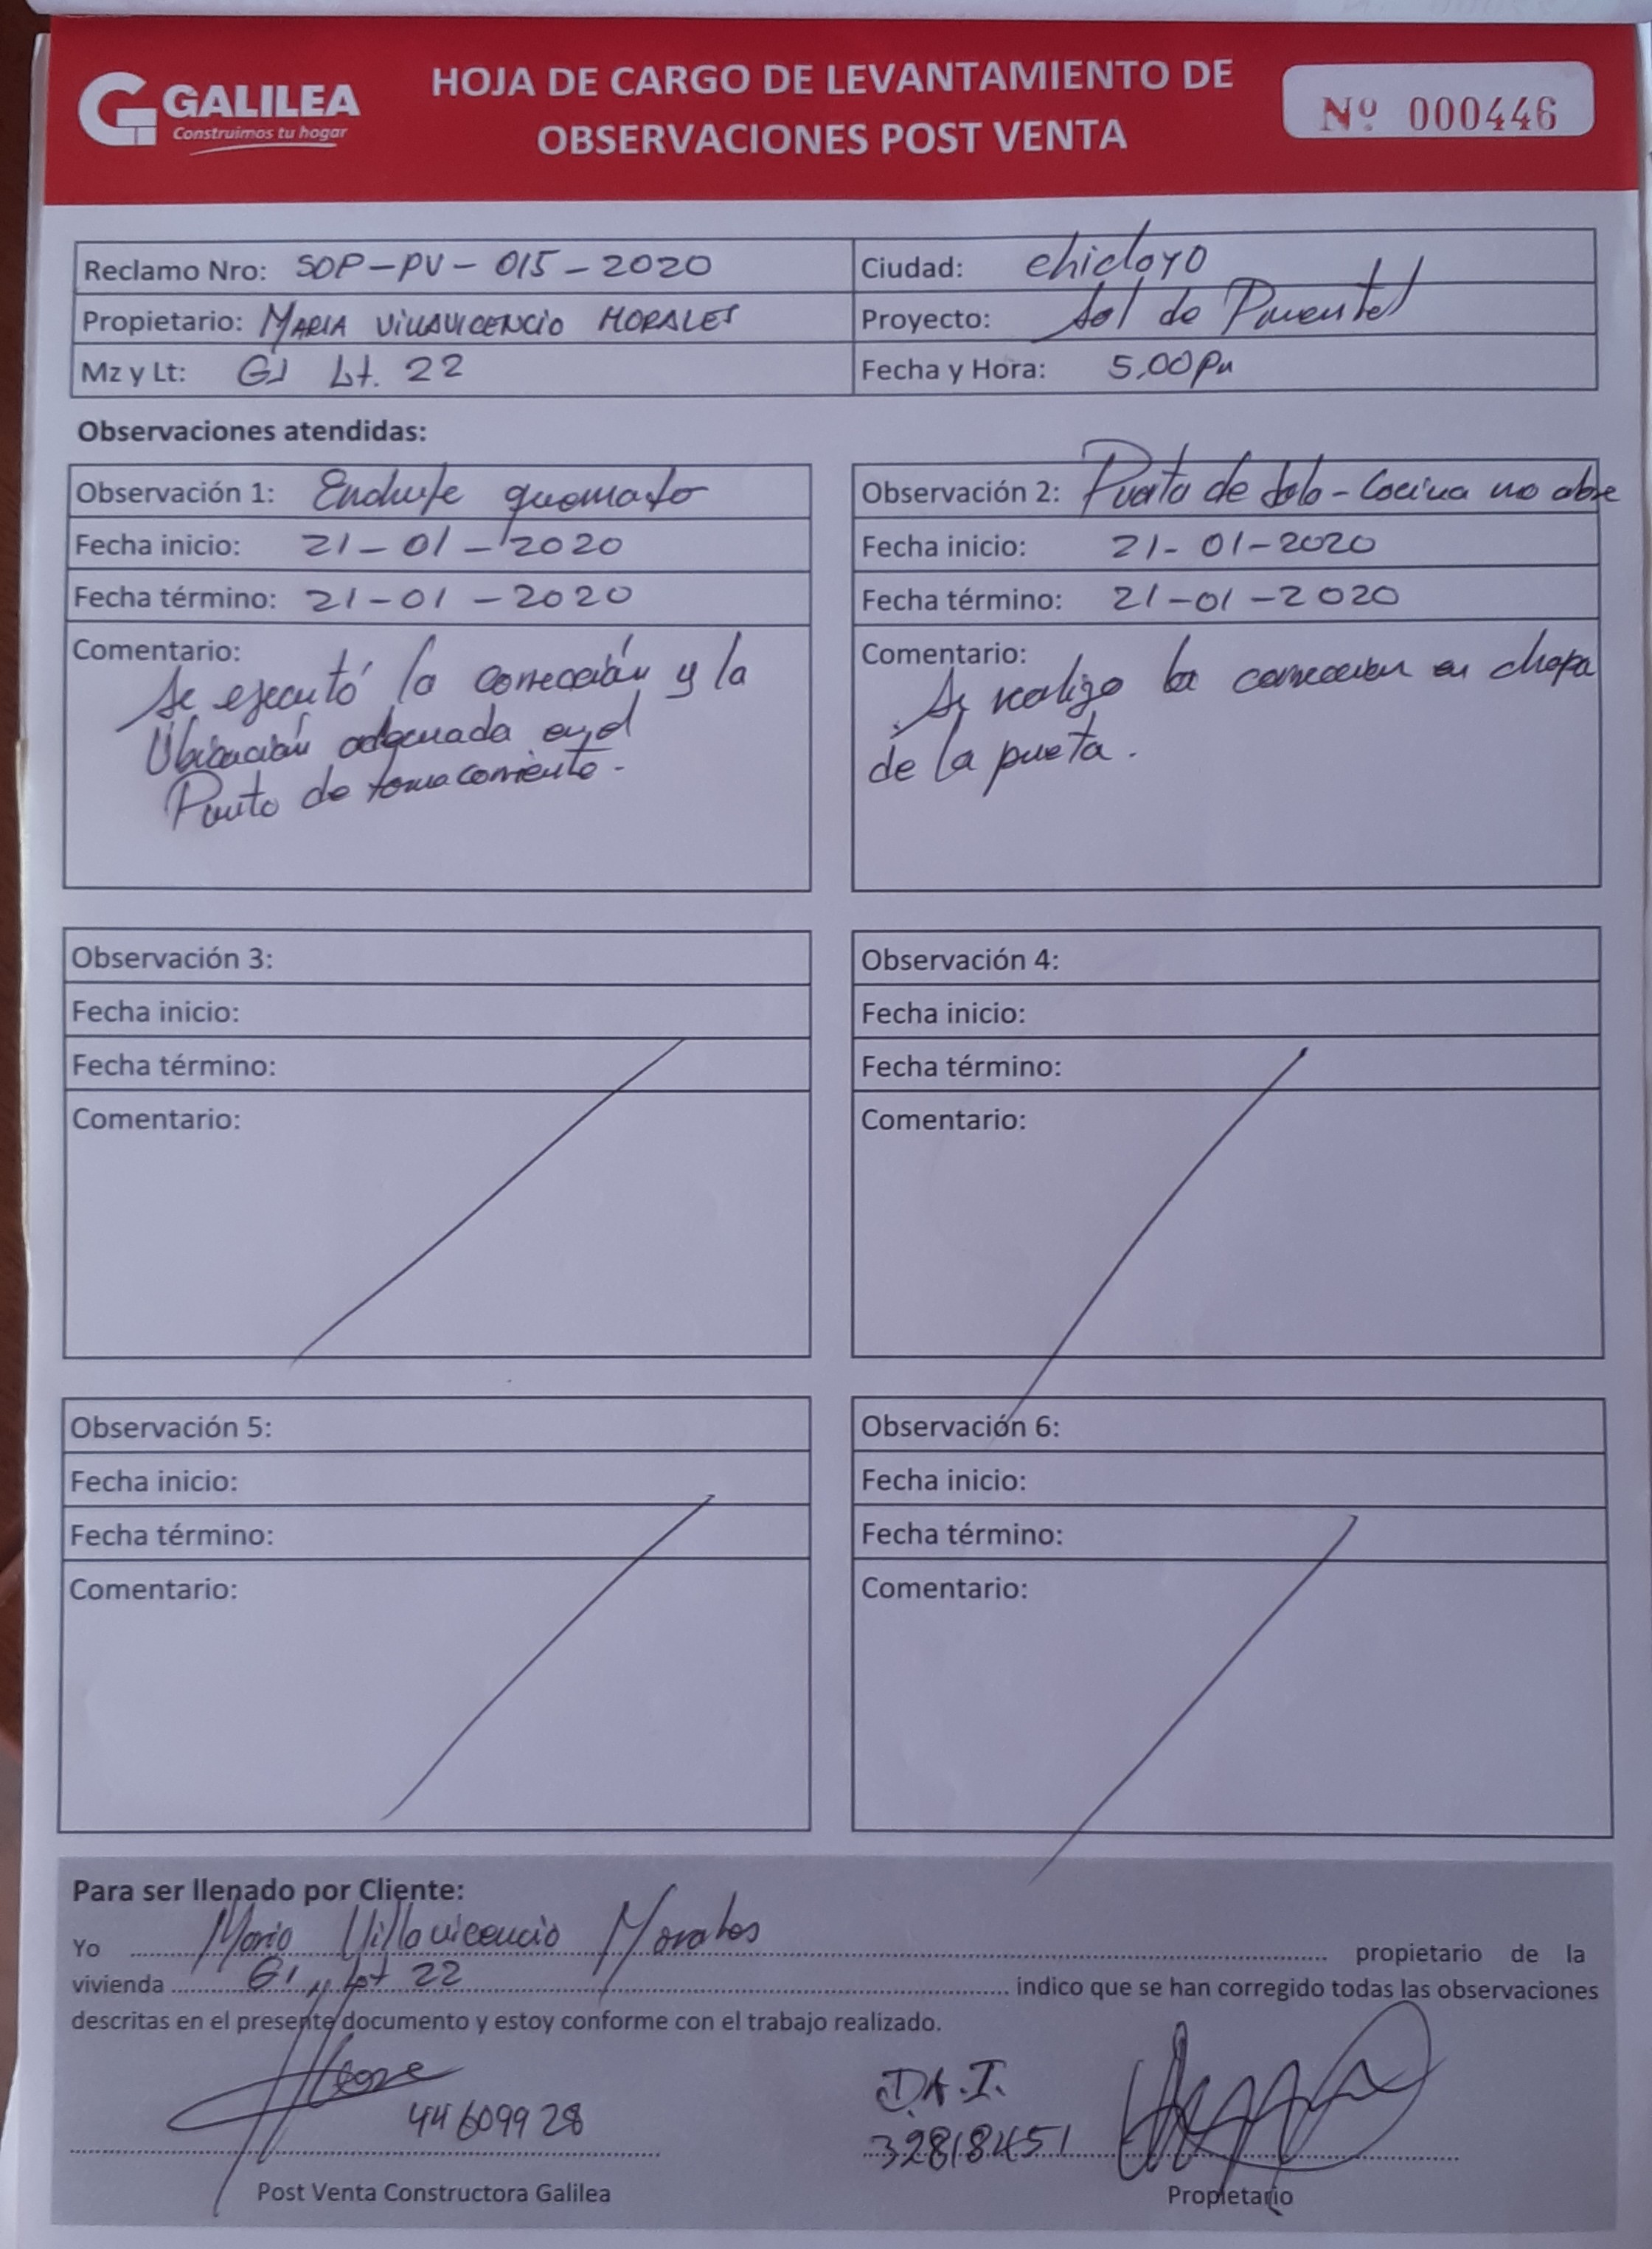 GALILEA
Construimos tu hogar
HOJA DE CARGO DE LEVANTAMIENTO DE
OBSERVACIONES POST VENTA
Nº 000446
Reclamo Nro: SDP-PV-015-2020
Ciudad: chiclayo
Propietario: MARIA VILLAVICENCIO MORALES
Proyecto: Sol de Pimentel
Mz y Lt: G1 Lt. 22
Fecha y Hora: 5,00 Pm
Observaciones atendidas:
Observación 1: Enchufe quemado
Fecha inicio: 21-01-2020
Fecha término: 21-01-2020
Comentario:
Se ejecutó la corrección y la
Ubicación adecuada en el
Punto de tomacorriente.-
Observación 2: Puerta de Sala-Cocina no abre
Fecha inicio: 21-01-2020
Fecha término: 21-01-2020
Comentario:
Se realizo la correccion en chapa
de la pueta.
Observación 3:
Fecha inicio:
Fecha término:
Comentario:
Observación 4:
Fecha inicio:
Fecha término:
Comentario:
Observación 5:
Fecha inicio:
Fecha término:
Comentario:
Observación 6:
Fecha inicio:
Fecha término:
Comentario:
Para ser llenado por Cliente:
Yo Maria Villavicencio Morales propietario de la
vivienda G1 Lot 22 indico que se han corregido todas las observaciones
descritas en el presente documento y estoy conforme con el trabajo realizado.
44609928
Post Venta Constructora Galilea
D.N.I.
32818451
Propietario